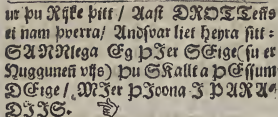 ur þu Rijke þitt / Aast DROTTens
ei nam þverra/ Andsvar liet heyra sitt:
SANNlega Eg þJer SEige (su er
Nuggunen vijs) þu SKallt a þEssum
DEige / MJer þJoona J PARA-
DIJS.